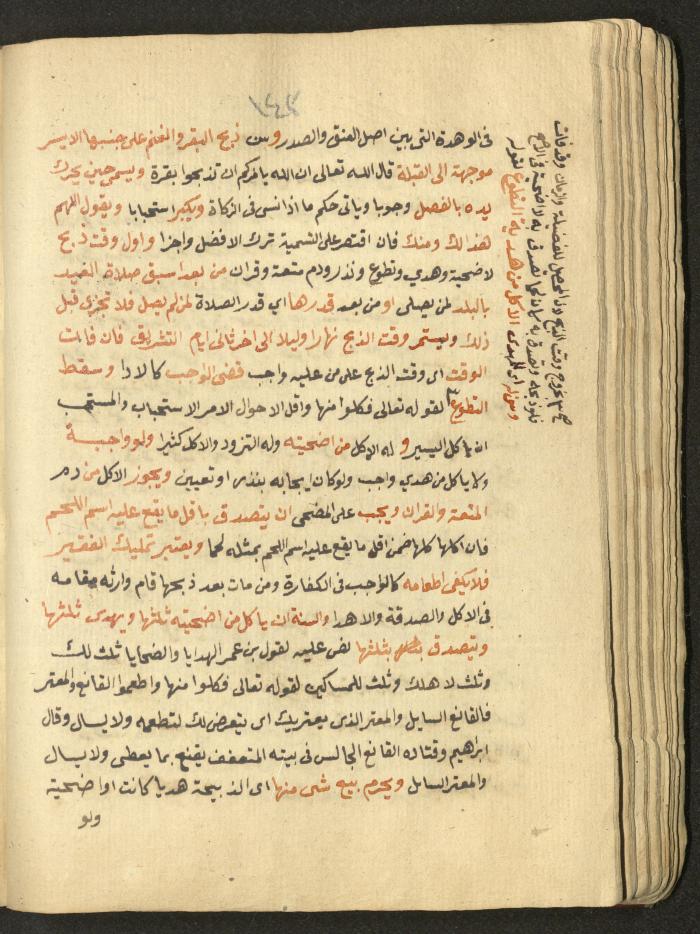 ١٤٣
فى الوهدة التى بين اصل العنق والصدر وسن ذبح البقر والغنم على جنبها الايسر
موجهة الى القبلة قال الله تعالى ان الله يامركم ان تذبحوا بقرة ويسمى حين يحرك
يده بالفصل وجوبا وياتى حكم ما اذا نسى فى الزكاة ويكبر استحبابا ويقول اللهم
هذا لك ومنك فان اقتصر على التسمية ترك الافضل واجزا واول وقت ذبح
لاضحية وهدي وتطوع ونذر ودم متعة وقران من بعد اسبق صلاة العيد
بالبلد لمن يصلى او من بعد قدرها اى قدر الصلاة لمن لم يصل فلا تجزى قبل
ذلك ويستمر وقت الذبح نهارا وليلا الى اخر ثانى ايام التشريق فان فات
الوقت اى وقت الذبح على من عليه واجب قضى الواجب كالادا وسقط
التطوع لقوله تعالى فكلوا منها واقل الاحوال الامر الاستحباب والمستحب
ان ياكل اليسير و له الاكل من اضحيته وله التزود والاكل كثيرا ولو واجبة
ولا ياكل من هدي واجب ولو كان ايجابه بنذر او تعيين ويجوز الاكل من دم
المتعة والقران ويجب على المضحى ان يتصدق باقل ما يقع عليه اسم اللحم
فان اكلها كلها ضمن اقل ما يقع عليه اسم اللحم بمثله لحما ويعتبر تمليك الفقير
فلا يكفى اطعامه كالواجب فى الكفارة ومن مات بعد ذبحها قام وارثه مقامه
فى الاكل والصدقة والاهدا والسنة ان ياكل من اضحيته ثلثها ويهدى ثلثها
ويتصدق بثلثها نص عليه لقول بن عمر الهدايا والضحايا ثلث لك
وثلث لاهلك وثلث للمساكين لقوله تعالى فكلوا منها واطعموا القانع والمعتر
فالقانع السايل والمعتر الذى يعتريك اى يتعرض لك لتطعمه ولا يسال وقال
ابراهيم وقتاده القانع الجالس فى بيته المتعفف يقنع بما يعطى ولا يسال
والمعتر السايل ويحرم بيع شى منها اى الذبيحة هديا كانت او اضحية
ولو
خروج وقت الذبح لان المحصل للفضيلة الزمان وقد فات
فلو ذبحه وتصدق به كان لحما تصدق به لا اضحية فى الاصح
وسن الاكل من هدية التطوع لقوله